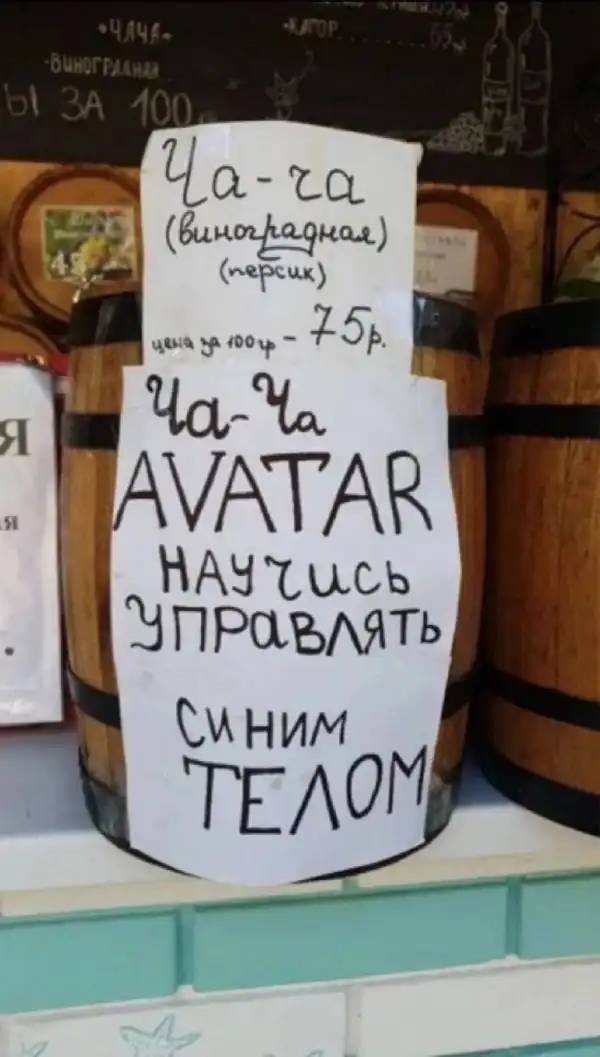 •ЧАЧА•
•КАГОР
65
•ВИНОГРАДНАЯ
Ы ЗА 100
Ча-ча
(виноградная)
(персик)
цена за 100гр - 75р.
Ча-Ча
AVATAR
НАУЧИСЬ
УПРАВЛЯТЬ
СИНИМ
ТЕЛОМ
Я
ая